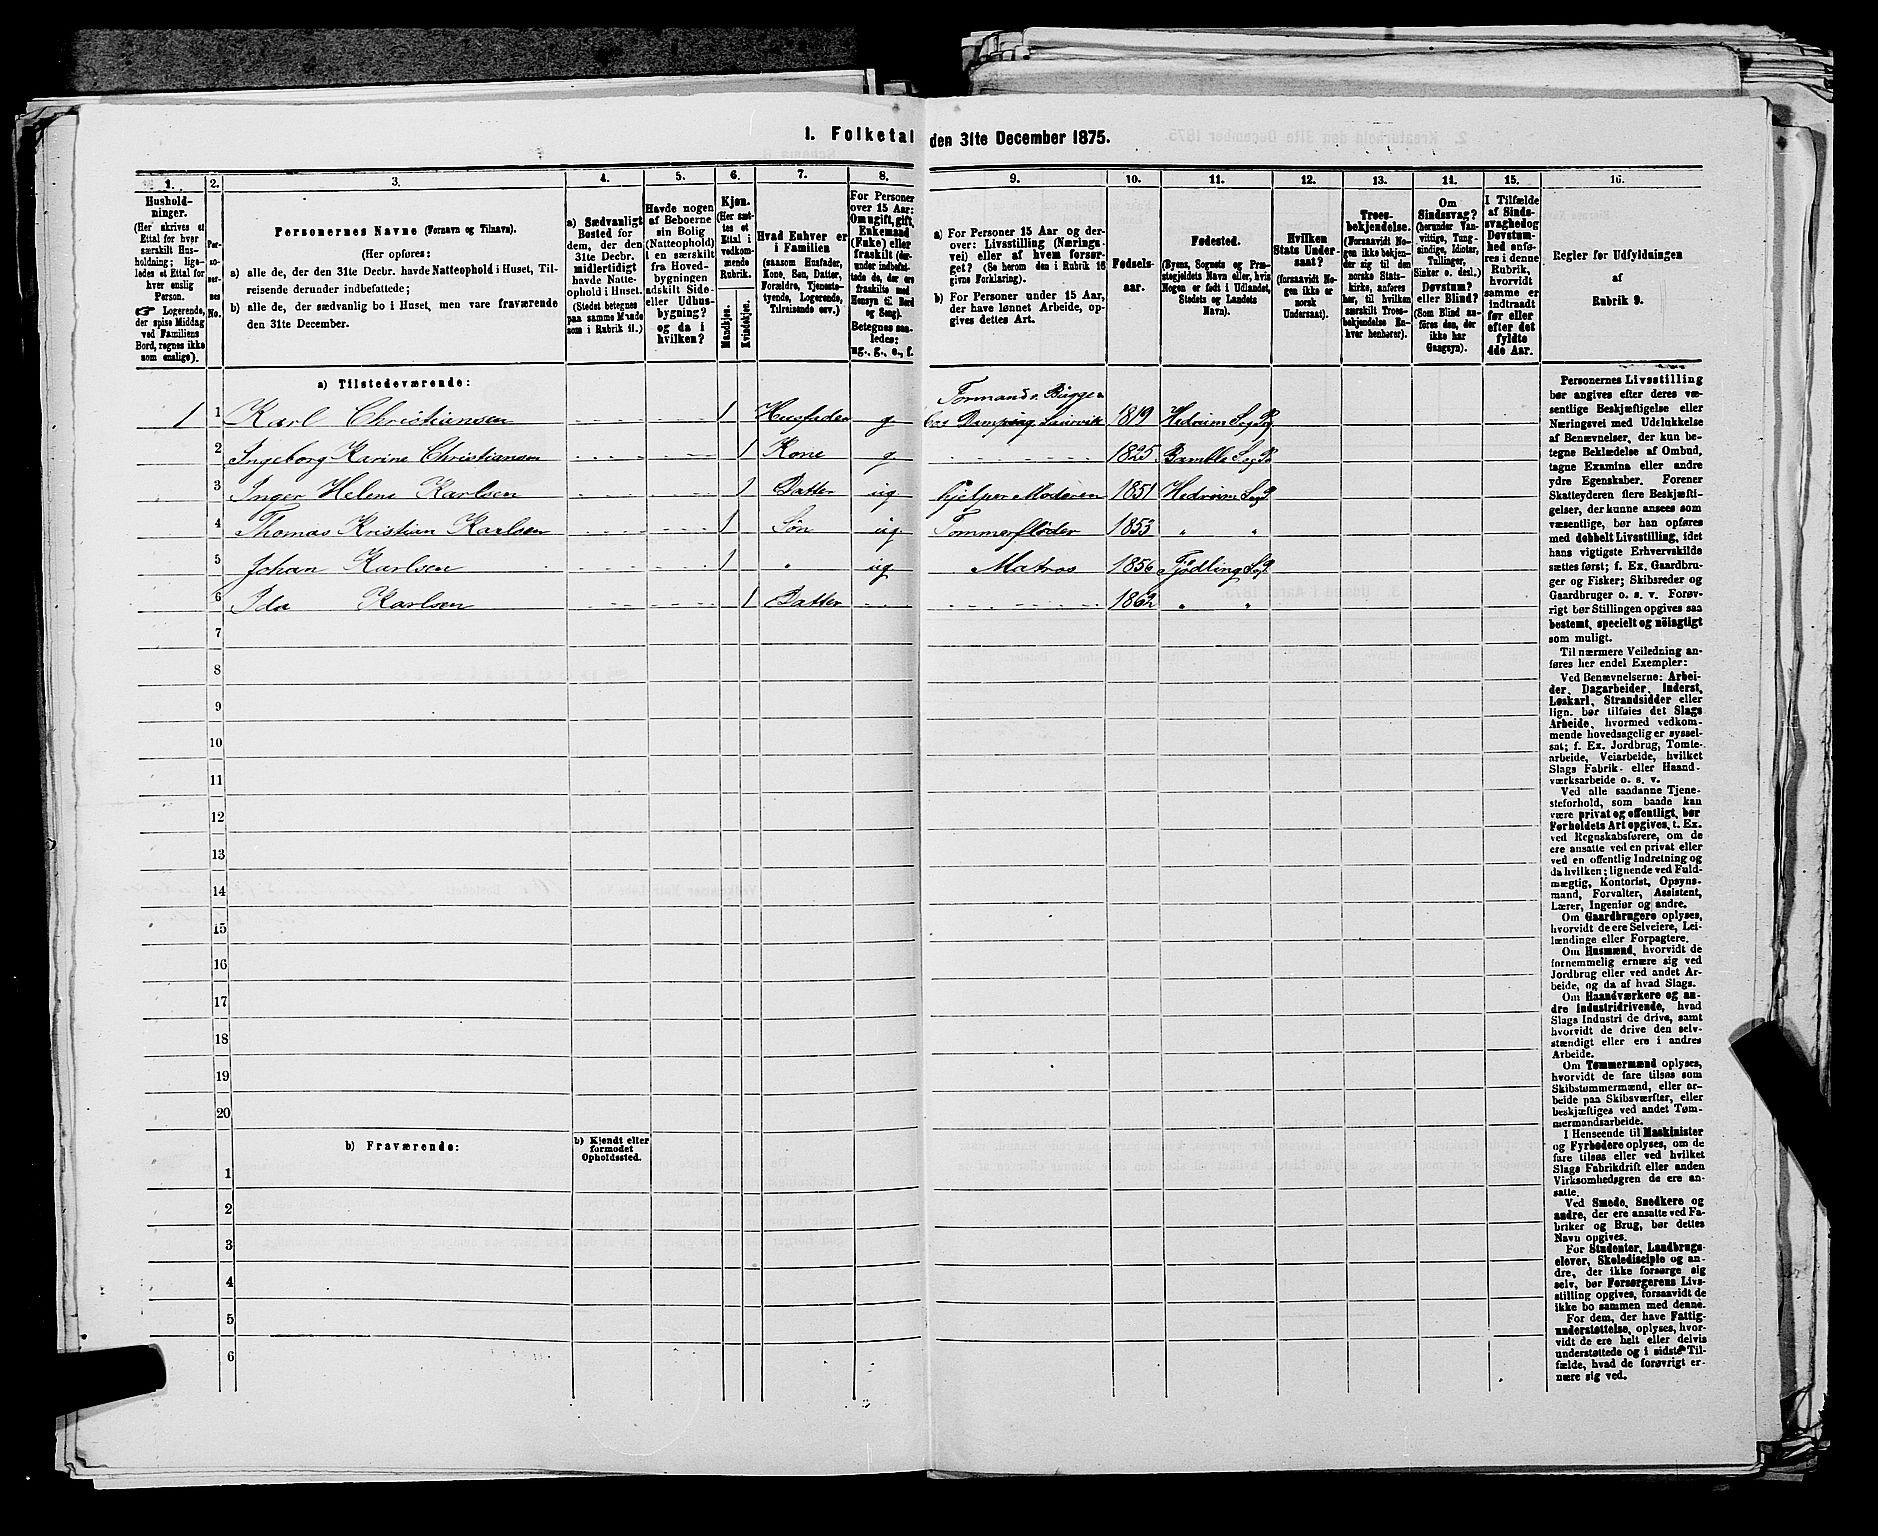 1. Folketal den 31te December 1875.
1. 2. 3. 4. 5. 6. 7. 8. 9. 10. 11. 12. 13. 14. 15. 16.
Hushold-
ninger.
(Her skrives et
Ettal for hver
særskilt Hus-
holdning; lige-
ledes et Ettal for
hver enslig
Person.
☞ Logerende,
der spise Middag
ved Familiens
Bord, regnes ikke
som enslige).
Per-
so-
ner-
nes
No.
Personernes Navne (Fornavn og Tilnavn).
(Her opføres:
a) alle de, der den 31te Decbr. havde Natteophold i Huset, Til-
reisende derunder indbefattede;
b) alle de, der sædvanlig bo i Huset, men vare fraværende
den 31te December.
a) Sædvanligt
Bosted for
dem, der den
31te Decbr.
midlertidigt
havde Natte-
ophold i Huset.
(Stedet betegnes
paa samme Maade
som i Rubrik 11.)
Havde nogen
af Beboerne
sin Bolig
(Natteophold)
i en særskilt
fra Hoved-
bygningen
adskilt Side-
eller Udhus-
bygning?
og da i
hvilken?
Kjøn.
(Her sæt-
tes et
Ettal i
vedkom-
mende
Rubrik.
Mandkjøn.
Kvindekjøn.
Hvad Enhver er
i Familien
(saasom Husfader,
Kone, Søn, Datter,
Forældre, Tjeneste-
tyende, Logerende,
Tilreisende osv.)
For Personer
over 15 Aar:
Om ugift, gift,
Enkemand
(Enke) eller
fraskilt (der-
under indbefat-
tede de, der ere
fraskilte med
Hensyn til Bord
og Seng).
Betegnes saa-
ledes:
ug., g., e., f.
a) For Personer 15 Aar og der-
over: Livsstilling (Nærings-
vei) eller af hvem forsør-
get? (Se herom den i Rubrik 16
givne Forklaring).
b) For Personer under 15 Aar,
der have lønnet Arbeide, op-
gives dettes Art.
Fødsels-
aar.
Fødested.
(Byens, Sognets og Præ-
stegjeldets Navn eller, hvis
Nogen er født i Udlandet,
Stedets og Landets
Navn).
Hvilken
Stats Under-
saat?
(forsaavidt No-
gen ikke er
norsk
Undersaat).
Troes-
bekjendelse.
(Forsaavidt No-
gen ikke bekjen-
der sig til den
norske Stats-
kirke, anføres
her, til hvilken
særskilt Troes-
bekjendelse En-
hver henhører).
Om
Sindssvag?
(herunder Van-
vittige, Tung-
sindige, Idioter,
Tullinger,
Sinker o. desl.)
Døvstum?
eller Blind?
(Som Blind an-
føres den, der
ikke har
Gangsyn).
I Tilfælde
af Sinds-
svaghed og
Døvstum-
hed anfø-
res i denne
Rubrik,
hvorvidt
samme er
indtraadt
før eller
efter det
fyldte
4de Aar.
Regler for Udfyldningen
af
Rubrik 9.
a) Tilstedeværende:
1 1 Karl Christiansen 1 Husfader g Formand v. Bugge &
Dampsag Laurvik 1819 Hedrum S og P
2 Ingeborg Karine Christiansen 1 Kone g 1825 Bamble S og P
3 Inger Helene Karlsen 1 Datter ug hjelper Moderen 1851 Hedrum S og P
4 Thomas Kristian Karlsen 1 Søn ug Tommerfløder 1853 " "
5 Johan Karlsen 1 " ug Matros 1856 Tjödling S og P
6 Ida Karlsen 1 Datter 1862 " "
7
8
9
10
11
12
13
14
15
16
17
18
19
20
b) Fraværende:
b) Kjendt eller
formodet
Opholdssted.
1
2
3
4
5
6
Personernes Livsstilling
bør angives efter deres væ-
sentlige Beskjæftigelse eller
Næringsvei med Udelukkelse
af Benævnelser, der kun be-
tegne Beklædelse af Ombud,
tagne Examina eller andre
ydre Egenskaber. Forener
Skatteyderen flere Beskjæfti-
gelser, der kunne ansees som
væsentlige, bør han opføres
med dobbelt Livsstilling, idet
hans vigtigste Erhvervskilde
sættes først; f. Ex. Gaardbru-
ger og Fisker; Skibsreder og
Gaardbruger o. s. v. Forøv-
rigt bør Stillingen opgives saa
bestemt, specielt og nöiagtigt
som muligt.
Til nærmere Veiledning an-
føres her endel Exempler:
Ved Benævnelserne: Arbei-
der, Dagarbeider, Inderst,
Løskarl, Strandsidder eller
lign. bør tilføies det Slags
Arbeide, hvormed vedkom-
mende hovedsagelig er syssel-
sat; f. Ex. Jordbrug, Tomte-
arbeide, Veiarbeide, hvilket
Slags Fabrik- eller Haand-
værksarbeide o. s. v.
Ved alle saadanne Tjene-
steforhold, som baade kan
være privat og offentligt, bør
Forholdets Art opgives, t. Ex.
ved Regnskabsførere, om de
ere ansatte ved en privat eller
ved en offentlig Indretning og
da hvilken; lignende ved Fuld-
mægtig, Kontorist, Opsyns-
mand, Forvalter, Assistent,
Lærer, Ingeniør og andre.
Om Gaardbrugere oplyses,
hvorvidt de ere Selveiere, Lei-
lændinge eller Forpagtere.
Om Husmænd, hvorvidt de
fornemmelig ernære sig ved
Jordbrug eller ved andet Ar-
beide, og da af hvad Slags.
Om Haandværkere og an-
dre industridrivende, hvad
Slags Industri de drive, samt
hvorvidt de drive den selv-
stændigt eller ere i andres
Arbeide.
Om Tømmermænd oplyses,
hvorvidt de fare tilsøs som
Skibstømmermænd, eller ar-
beide paa Skibsværfter, eller
beskjæftiges ved andet Tøm-
mermandsarbeide.
I Henseende til Maskinister
og Fyrbødere oplyses, om de
fare tilsøs eller ved hvilket
Slags Fabrikdrift eller anden
Virksomhedsgren de ere an-
satte.
Ved Smede, Snedkere og
andre, der ere ansatte ved Fa-
briker og Brug, bør dettes
Navn opgives.
For Studenter, Landbrugs-
elever, Skoledisciple og an-
dre, der ikke forsørge sig
selv, bør Forsørgerens Livs-
stilling opgives, forsaavidt de
ikke bo sammen med denne.
For dem, der have Fattig-
understøttelse, oplyses, hvor-
vidt de ere helt eller delvis
understøttede og i sidste Til-
fælde, hvad de forøvrigt er-
nære sig ved.